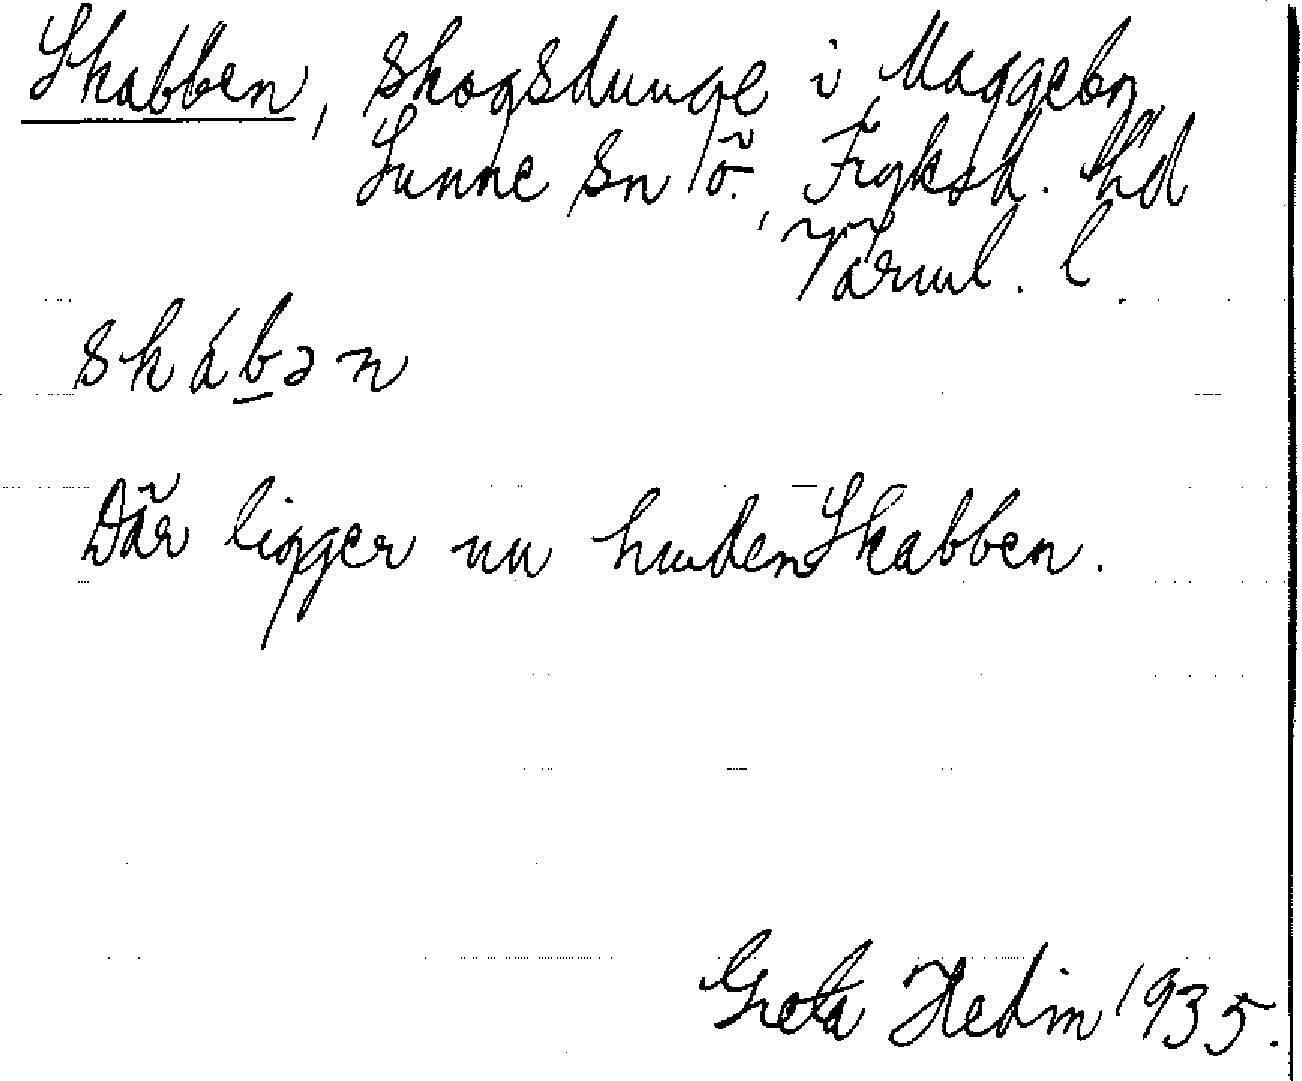 Skabben, skogsdunge i Maggebn,
Sunne Sn ö., Fryksd. hd
Värml. l.
skábən
Där ligger nu hudenSkabben.
Greta Hedin 1935.